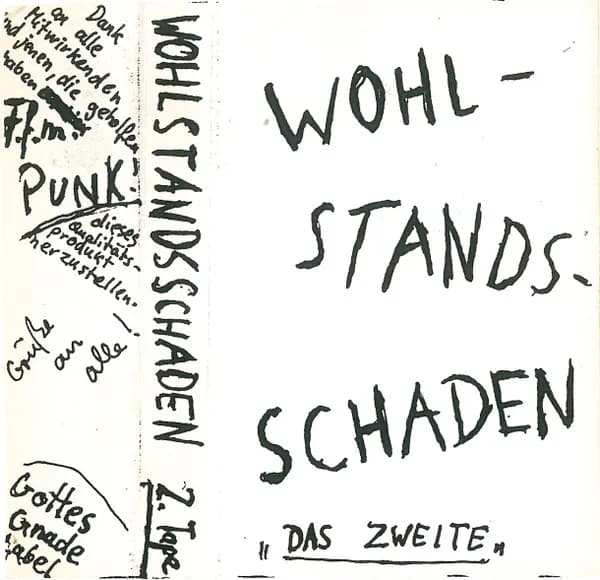 Dank
an alle
Mitwirkenden
und jenen, die geholfen
haben
F.f.m.
PUNK.
dieses
Qualitäts-
produkt
herzustellen.
Grüße
an
alle!
Gottes
Gnade
Label
WOHLSTANDSSCHADEN 2. Tape
WOHL-
STANDS-
SCHADEN
„DAS ZWEITE„